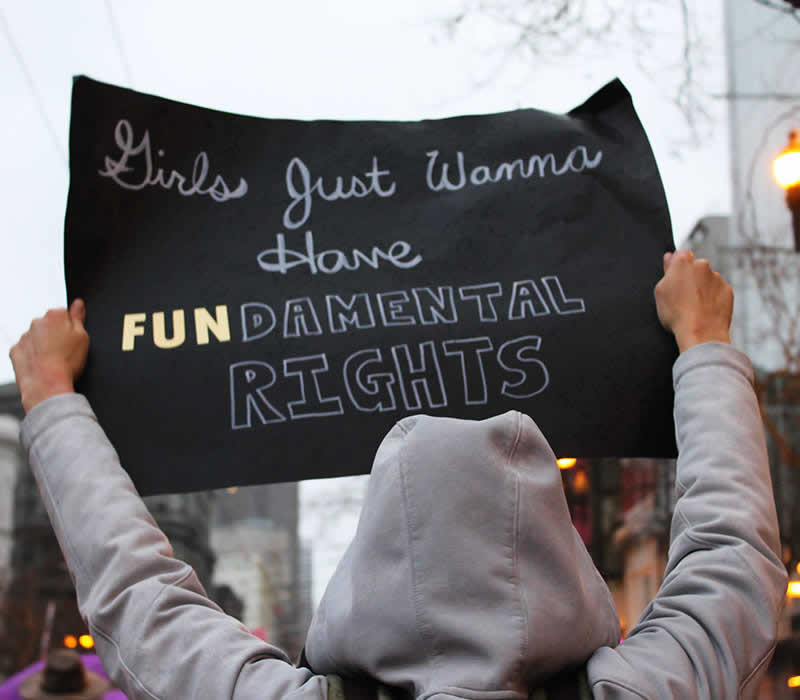 Girls Just Wanna
Have
FUNDAMENTAL
RIGHTS